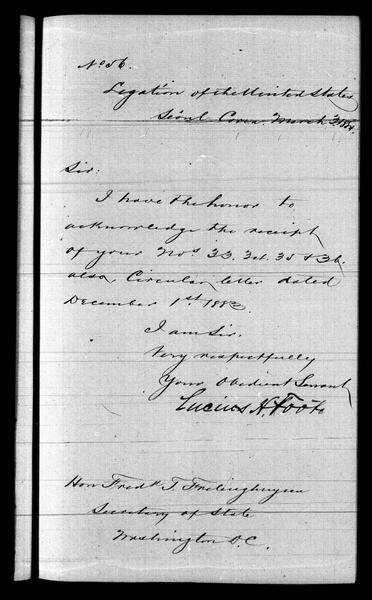 No 56.
Legation of the United States
Séoul Corea. March
Sir:
I have the honor to
acknowledge the receipt
of your Nos 33. 34. 35 & 36.
also, Circular letter dated
December 1st 1883.
I am Sir.
Very respectfully
Your Obedient Servant
Lucius H. Foote
Hon Fredk T. Frelinghuysen
Secretary of State
Washington D.C.